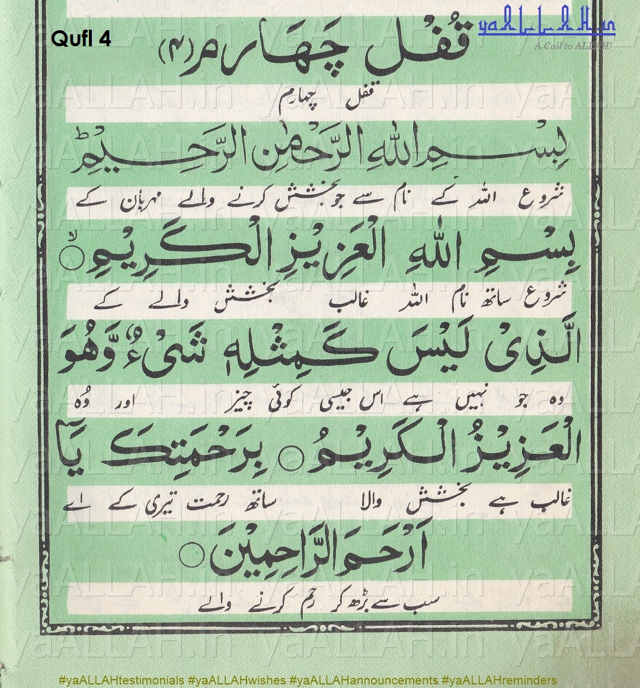 Qufl 4
yaALLAH.in
A Call to ALLAH!
قُفْل چَهَارم (۴)
قفل چہارم
بِسْمِ اللهِ الرَّحْمٰنِ الرَّحِيْمِ ط
شروع اللہ کے نام سے جو بخشش کرنے والے مہربان کے
بِسْمِ اللهِ الْعَزِيْزِ الْكَرِيْمِ ۙ
شروع ساتھ نام اللہ غالب بخشش والے کے
الَّذِىْ لَيْسَ كَمِثْلِهٖ شَىْءٌ وَّهُوَ
وہ جو نہیں ہے اس جیسی کوئی چیز اور وُہ
الْعَزِيْزُ الْكَرِيْمُ ○ بِرَحْمَتِكَ يَآ
غالب ہے بخشش والا ساتھ رحمت تیری کے اے
اَرْحَمَ الرَّاحِمِيْنَ ○
سب سے بڑھ کر رحم کرنے والے
#yaALLAHtestimonials #yaALLAHwishes #yaALLAHannouncements #yaALLAHreminders